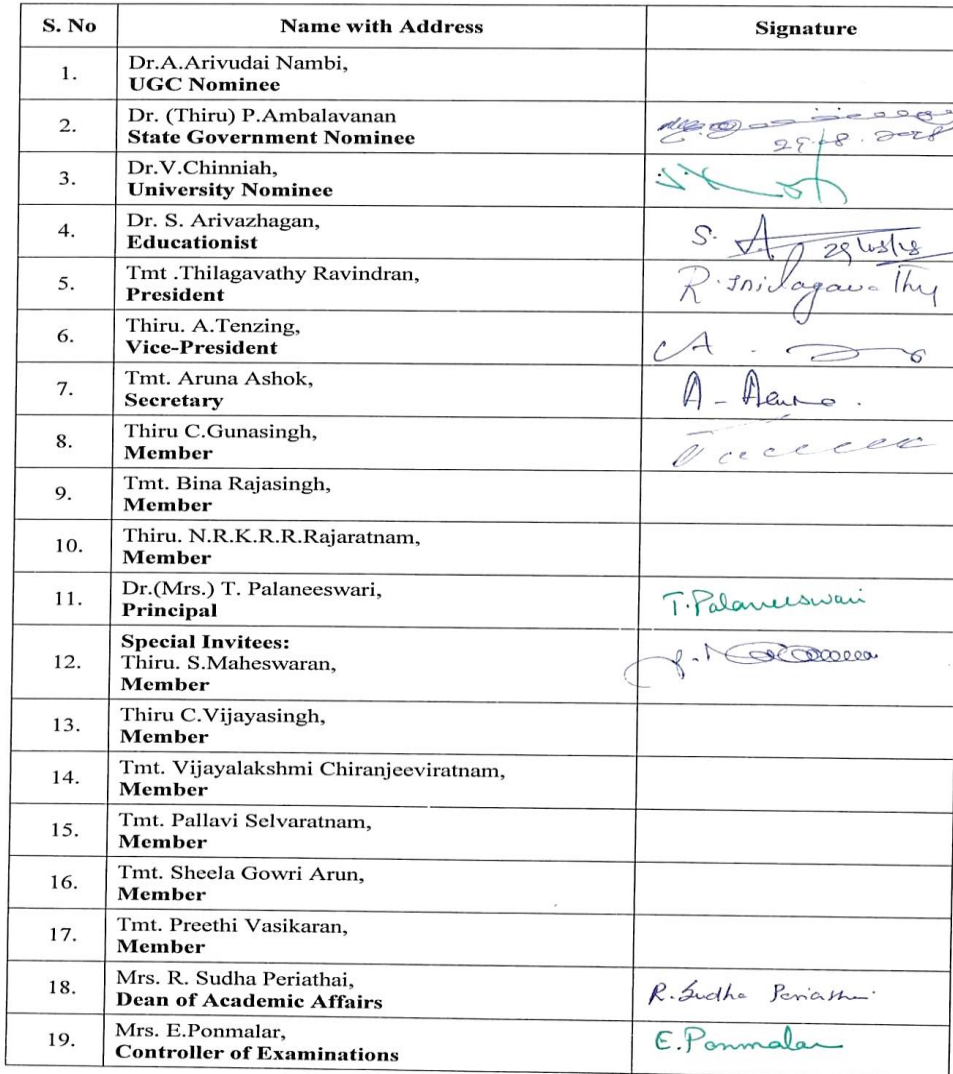 S. No Name with Address Signature
1. Dr.A.Arivudai Nambi,
UGC Nominee
2. Dr. (Thiru) P.Ambalavanan
State Government Nominee
3. Dr.V.Chinniah,
University Nominee
4. Dr. S. Arivazhagan,
Educationist S.
5. Tmt .Thilagavathy Ravindran,
President
6. Thiru. A.Tenzing,
Vice-President
7. Tmt. Aruna Ashok,
Secretary
8. Thiru C.Gunasingh,
Member
9. Tmt. Bina Rajasingh,
Member
10. Thiru. N.R.K.R.R.Rajaratnam,
Member
11. Dr.(Mrs.) T. Palaneeswari,
Principal T.Palaneeswari
12. Special Invitees:
Thiru. S.Maheswaran,
Member
13. Thiru C.Vijayasingh,
Member
14. Tmt. Vijayalakshmi Chiranjeeviratnam,
Member
15. Tmt. Pallavi Selvaratnam,
Member
16. Tmt. Sheela Gowri Arun,
Member
17. Tmt. Preethi Vasikaran,
Member
18. Mrs. R. Sudha Periathai,
Dean of Academic Affairs R. Sudha
19. Mrs. E.Ponmalar,
Controller of Examinations E.Ponmalar